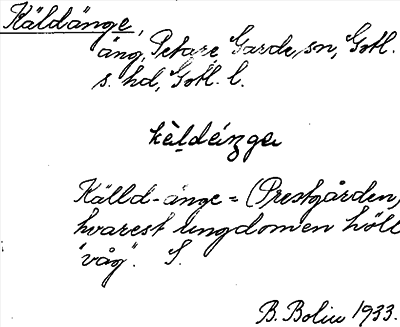 Käldänge,
äng, Petarfe Garde sn, Gotl.
s. hd, Gotl. l.
kèldéŋge
Källd-änge = (Prestgården,
hvarest ungdomen höll
"våg". S.
B. Bolin 1933.